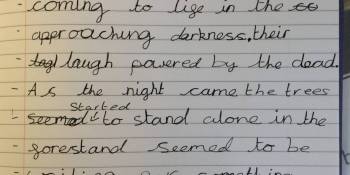 - coming to life in the
- approaching darkness, their
- laugh powered by the dead.
- As the night came the trees
Started
- seemed to stand alone in the
- forestand seemed to be
something